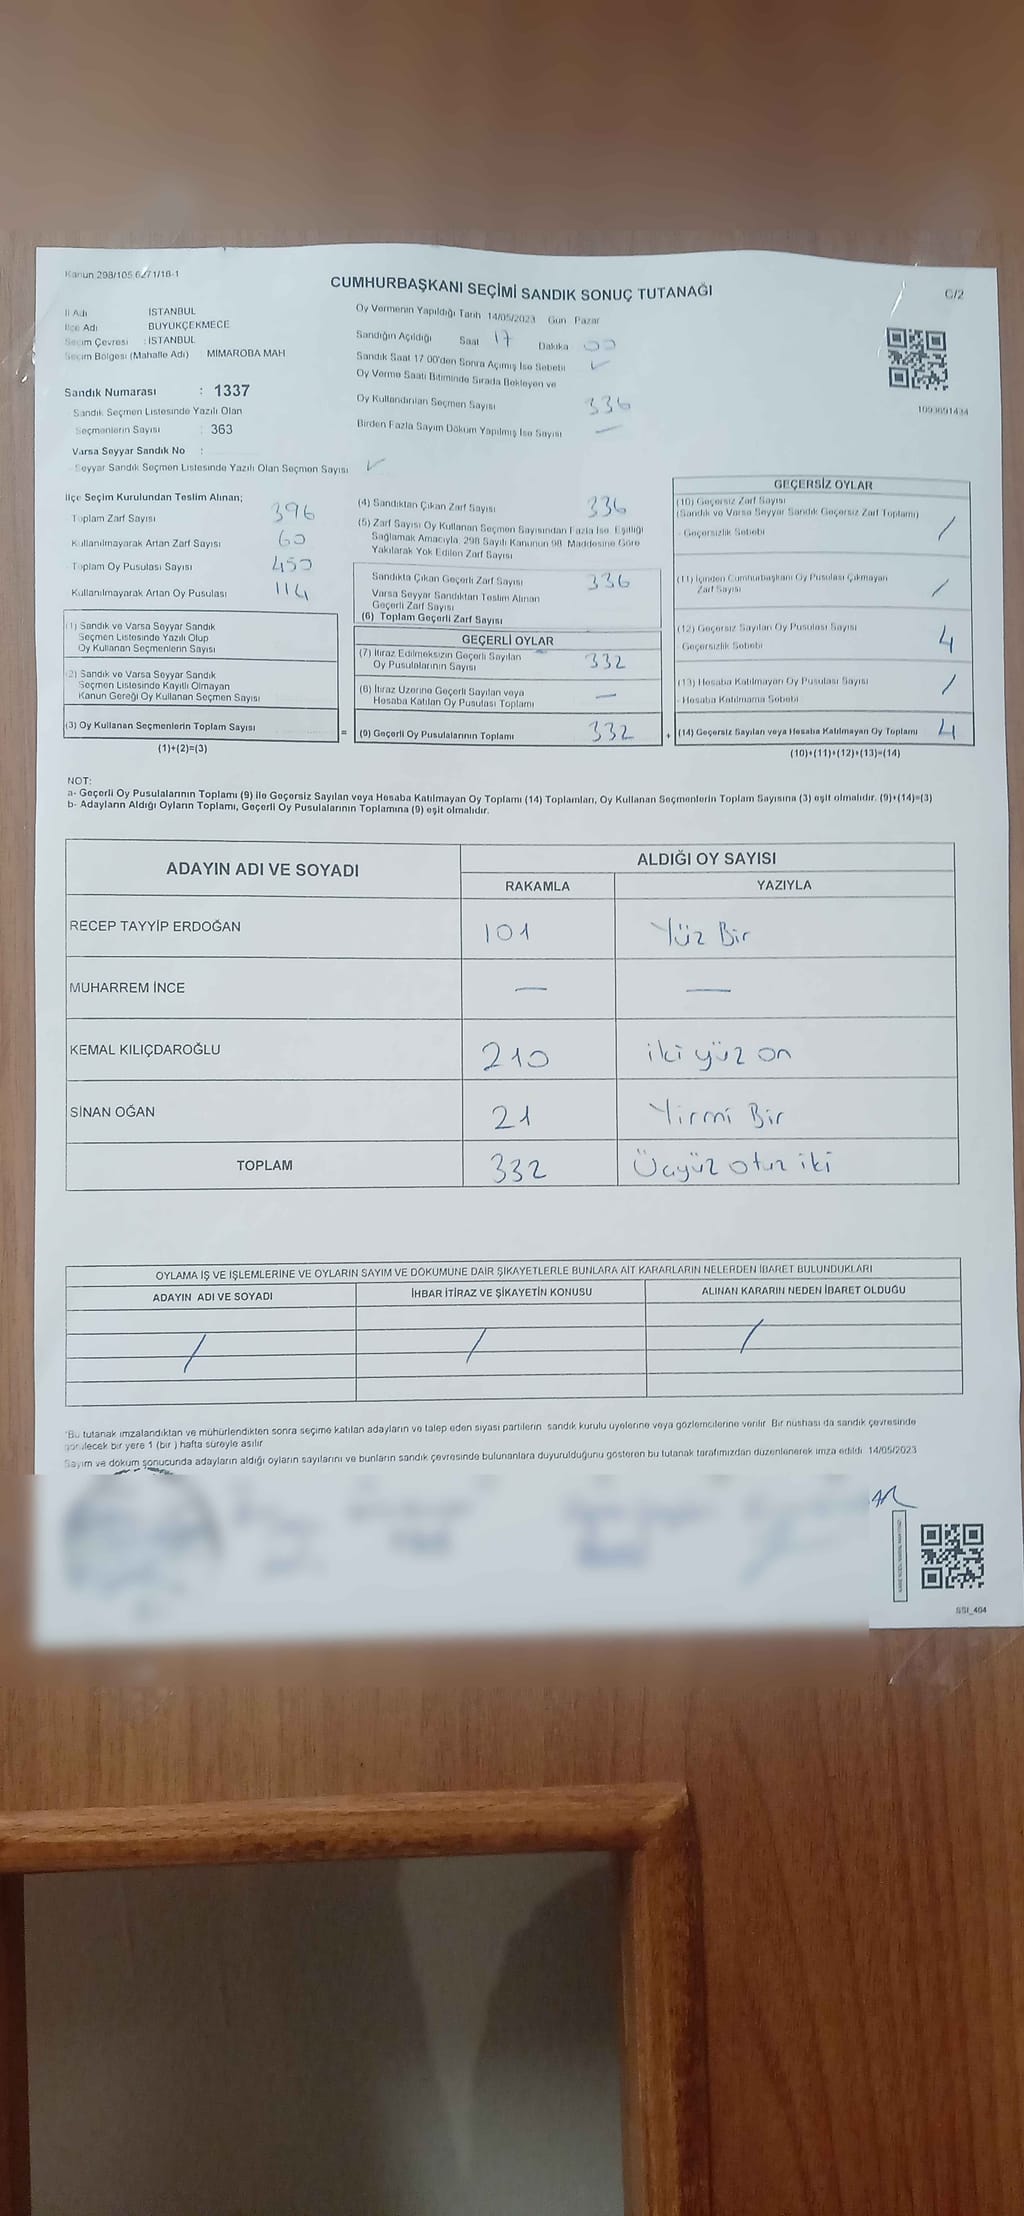 Kanun 298/105 6271/16-1
CUMHURBAŞKANI SEÇİMİ SANDIK SONUÇ TUTANAĞI
C/2
İl Adı İSTANBUL
İlçe Adı BÜYÜKÇEKMECE
Seçim Çevresi : İSTANBUL
Seçim Bölgesi (Mahalle Adı) MİMAROBA MAH
Sandık Numarası : 1337
Sandık Seçmen Listesinde Yazılı Olan
Seçmenlerin Sayısı : 363
Varsa Seyyar Sandık No :
Seyyar Sandık Seçmen Listesinde Yazılı Olan Seçmen Sayısı
Oy Vermenin Yapıldığı Tarih 14/05/2023 Gün Pazar
Sandığın Açıldığı Saat 17 Dakika 00
Sandık Saat 17 00'den Sonra Açımış İse Sebebi
Oy Verme Saati Bitiminde Sırada Bekleyen ve
Oy Kullandırılan Seçmen Sayısı 336
Birden Fazla Sayım Döküm Yapılmış İse Sayısı —
1093691434
İlçe Seçim Kurulundan Teslim Alınan;
Toplam Zarf Sayısı 396
Kullanılmayarak Artan Zarf Sayısı 60
Toplam Oy Pusulası Sayısı 450
Kullanılmayarak Artan Oy Pusulası 114
(1) Sandık ve Varsa Seyyar Sandık
Seçmen Listesinde Yazılı Olup
Oy Kullanan Seçmenlerin Sayısı
(2) Sandık ve Varsa Seyyar Sandık
Seçmen Listesinde Kayıtlı Olmayan
Kanun Gereği Oy Kullanan Seçmen Sayısı
(3) Oy Kullanan Seçmenlerin Toplam Sayısı
(1)+(2)=(3)
(4) Sandıktan Çıkan Zarf Sayısı 336
(5) Zarf Sayısı Oy Kullanan Seçmen Sayısından Fazla İse, Eşitliği
Sağlamak Amacıyla, 298 Sayılı Kanunun 98 Maddesine Göre
Yakılarak Yok Edilen Zarf Sayısı
Sandıkta Çıkan Geçerli Zarf Sayısı 336
Varsa Seyyar Sandıktan Teslim Alınan
Geçerli Zarf Sayısı
(6) Toplam Geçerli Zarf Sayısı
GEÇERLİ OYLAR
(7) İtiraz Edilmeksizin Geçerli Sayılan
Oy Pusulalarının Sayısı 332
(8) İtiraz Üzerine Geçerli Sayılan veya
Hesaba Katılan Oy Pusulası Toplamı —
= (9) Geçerli Oy Pusulalarının Toplamı 332 +
GEÇERSİZ OYLAR
(10) Geçersiz Zarf Sayısı
(Sandık ve Varsa Seyyar Sandık Geçersiz Zarf Toplamı) /
Geçersizlik Sebebi
(11) İçinden Cumhurbaşkanı Oy Pusulası Çıkmayan
Zarf Sayısı /
(12) Geçersiz Sayılan Oy Pusulası Sayısı 4
Geçersizlik Sebebi
(13) Hesaba Katılmayan Oy Pusulası Sayısı /
Hesaba Katılmama Sebebi
(14) Geçersiz Sayılan veya Hesaba Katılmayan Oy Toplamı 4
(10)+(11)+(12)+(13)=(14)
NOT:
a- Geçerli Oy Pusulalarının Toplamı (9) ile Geçersiz Sayılan veya Hesaba Katılmayan Oy Toplamı (14) Toplamları, Oy Kullanan Seçmenlerin Toplam Sayısına (3) eşit olmalıdır. (9)+(14)=(3)
b- Adayların Aldığı Oyların Toplamı, Geçerli Oy Pusulalarının Toplamına (9) eşit olmalıdır.
ADAYIN ADI VE SOYADI
ALDIĞI OY SAYISI
RAKAMLA YAZIYLA
RECEP TAYYİP ERDOĞAN 101 Yüz Bir
MUHARREM İNCE — —
KEMAL KILIÇDAROĞLU 210 iki yüz on
SİNAN OĞAN 21 Yirmi Bir
TOPLAM 332 Üçyüz otuz iki
OYLAMA İŞ VE İŞLEMLERİNE VE OYLARIN SAYIM VE DÖKÜMÜNE DAİR ŞİKAYETLERLE BUNLARA AİT KARARLARIN NELERDEN İBARET BULUNDUKLARI
ADAYIN ADI VE SOYADI İHBAR İTİRAZ VE ŞİKAYETİN KONUSU ALINAN KARARIN NEDEN İBARET OLDUĞU
/ / /
*Bu tutanak imzalandıktan ve mühürlendikten sonra seçime katılan adayların ve talep eden siyasi partilerin sandık kurulu üyelerine veya gözlemcilerine verilir Bir nüshası da sandık çevresinde
görülecek bir yere 1 (bir ) hafta süreyle asılır
Sayım ve döküm sonucunda adayların aldığı oyların sayılarını ve bunların sandık çevresinde bulunanlara duyurulduğunu gösteren bu tutanak tarafımızdan düzenlenerek imza edildi 14/05/2023